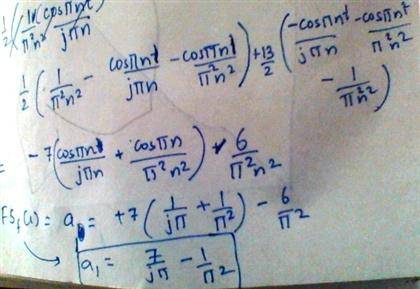 1/2 ( cosπn / π²n² jπn
1/2 ( 1/π²n² - cosπn/jπn - cosπn/π²n² ) + 13/2 ( -cosπn/jπn - cosπn/π²n²
- 1/π²n² )
= - 7 ( cosπn/jπn + cosπn/π²n² ) + 6/π²n²
FS₁(1) = a₁ = +7 ( 1/jπ + 1/π² ) - 6/π²
a₁ = 7/jπ - 1/π²